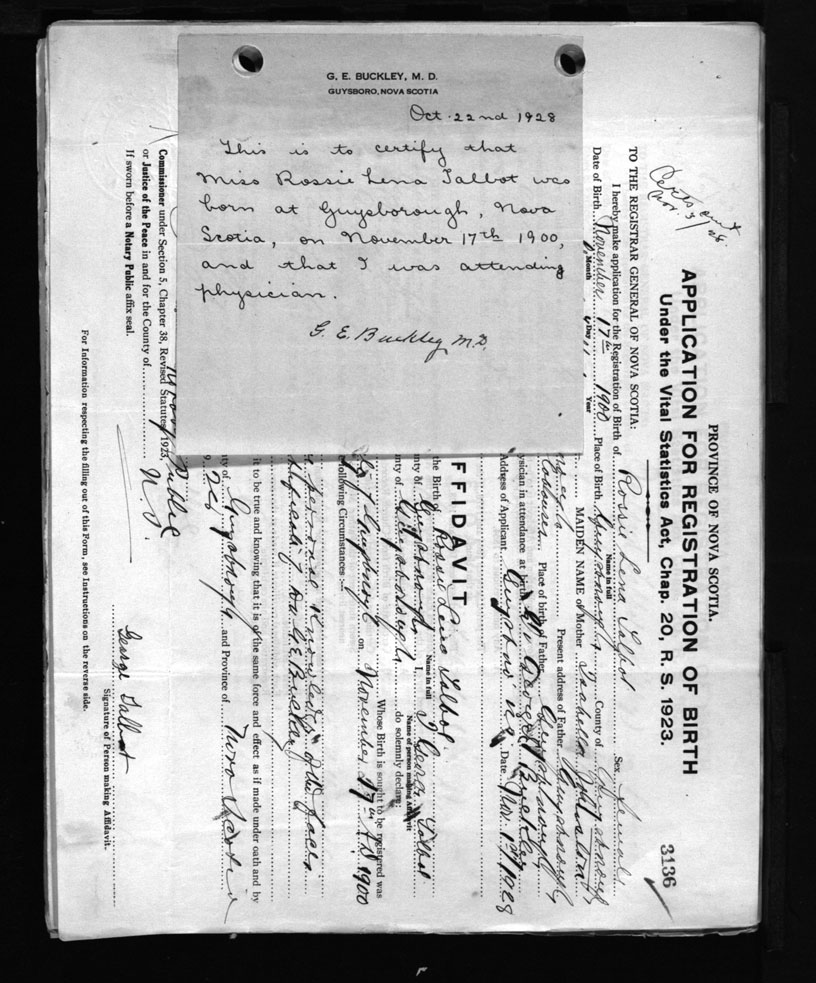 G. E. BUCKLEY, M. D.
GUYSBORO, NOVA SCOTIA
Oct. 22nd 1928
This is to certify that
Miss Rossie Lena Talbot was
born at Guysborough, Nova
Scotia, on November 17th 1900,
and that I was attending
physician.
G. E. Buckley M.D.
PROVINCE OF NOVA SCOTIA.
APPLICATION FOR REGISTRATION OF BIRTH
Under the Vital Statistics Act, Chap. 20, R. S. 1923.
3136
TO THE REGISTRAR GENERAL OF NOVA SCOTIA:
I hereby make application for the Registration of Birth of Rossie Lena Talbot Sex Female
Name in full
Date of Birth November 17th 1900 Place of Birth Guysborough County of Guysborough
Month Day Year
MAIDEN NAME of Mother Isabella
Present address of Father Guysborough
Place of birth of Father Guysborough
ysician in attendance at birth Dr George E Buckley
Address of Applicant Guysboro N.S. Date Nov. 1st 1928
FFIDAVIT
the Birth of Rossie Lena Talbot
Name in full
nty of Guysborough I, George Talbot
Name of person making Affidavit
nty of Guysborough do solemnly declare:
Whose Birth is sought to be registered was
on November 17th A.D. 1900
following Circumstances :—
personal knowledge of the facts
Dr G. E. Buckley
it to be true and knowing that it is of the same force and effect as if made under oath and by
ty of Guysborough and Province of Nova Scotia
George Talbot
Signature of Person making Affidavit.
Commissioner under Section 5, Chapter 38, Revised Statutes, 1923,
or Justice of the Peace in and for the County of
If sworn before a Notary Public affix seal.
For Information respecting the filling out of this Form, see Instructions on the reverse side.